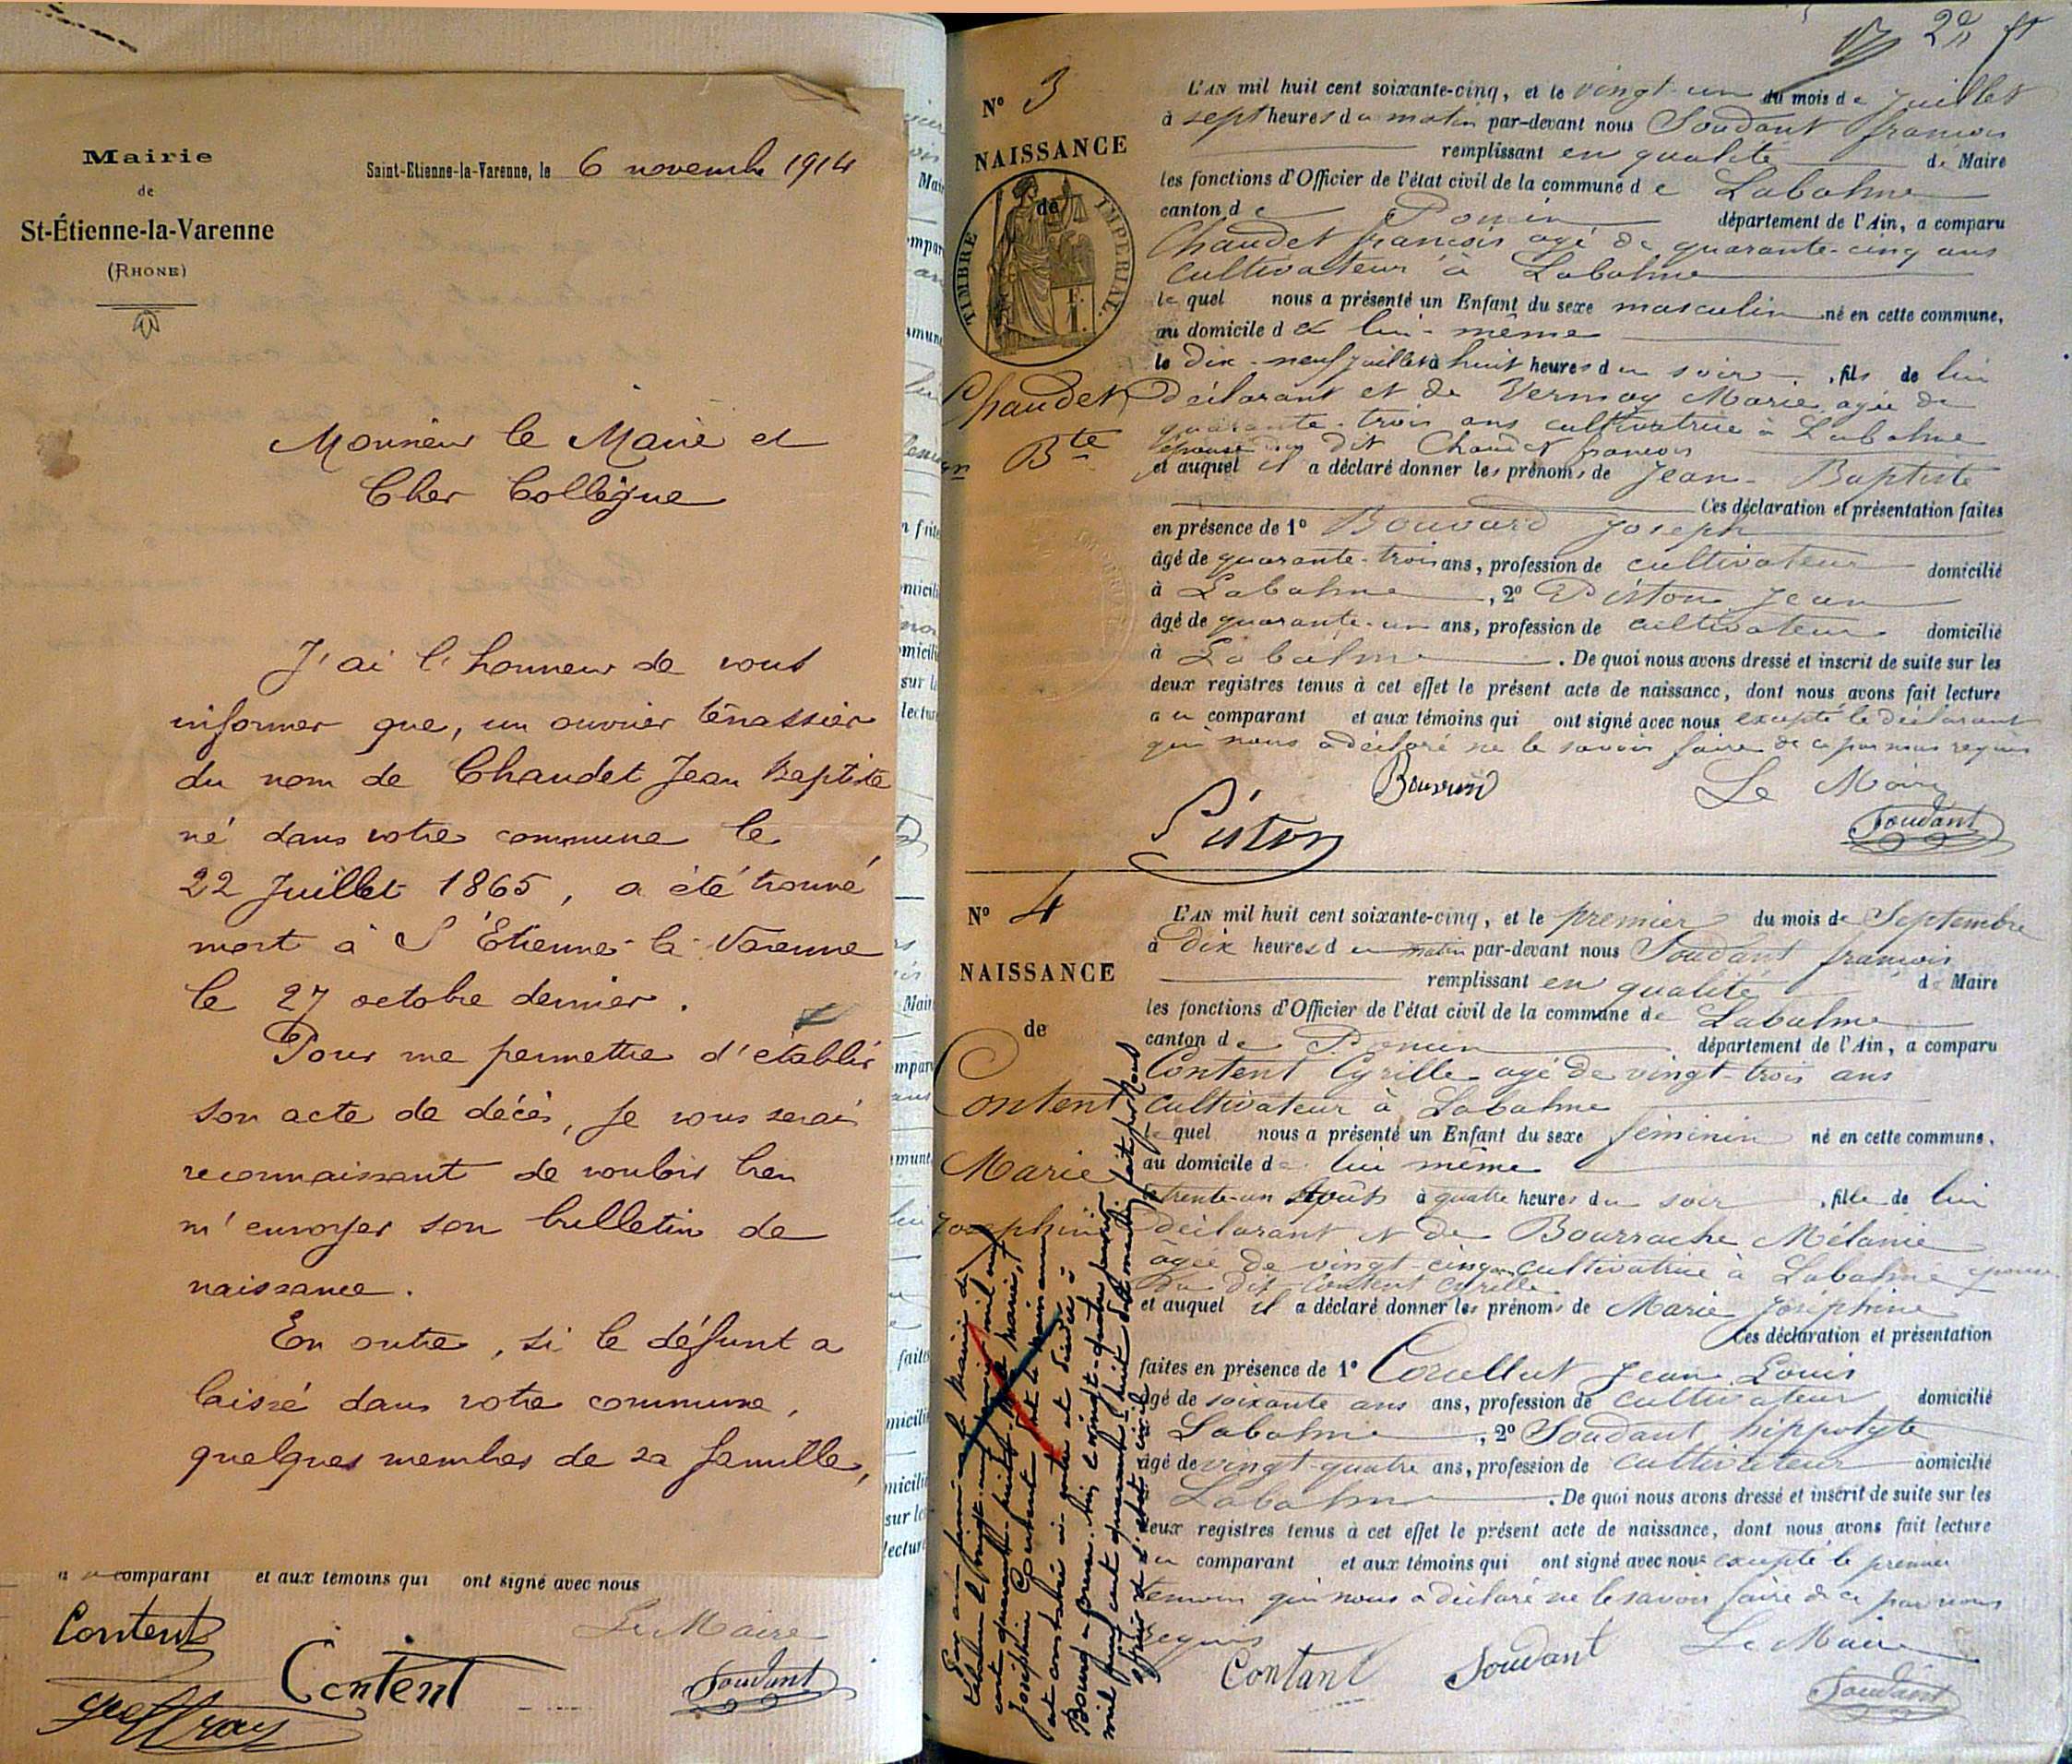 Mairie
de
St-Étienne-la-Varenne
(RHONE)
Saint-Etienne-la-Varenne, le 6 novembre 1914
Monsieur le Maire et
Cher Collègue
J'ai l'honneur de vous
informer que, un ouvrier térrassier
du nom de Chaudet Jean Baptiste
né dans votre commune le
22 Juillet 1865, a été trouvé
mort à St Étienne-la-Varenne
le 27 octobre dernier.
Pour me permettre d'établir
son acte de décès, je vous serai
reconnaissant de vouloir bien
m'envoyer son bulletin de
naissance.
En outre, si le défunt a
laissé dans votre commune,
quelques membres de sa famille,
comparant et aux témoins qui ont signé avec nous
Le Maire
Content
Content
Soudant
Geoffray
N° 3
NAISSANCE
de
TIMBRE IMPERIAL.
Chaudet
Jn Bte
L'AN mil huit cent soixante-cinq, et le vingt-un du mois de Juillet
à sept heures du matin par-devant nous Soudant francois
remplissant en qualité de Maire
les fonctions d'Officier de l'état civil de la commune de Labalme
canton de Poncin département de l'Ain, a comparu
Chaudet francois agé de quarante-cinq ans
cultivateur à Labalme
le quel nous a présenté un Enfant du sexe masculin né en cette commune,
au domicile de lui-même
le dix-neuf juillet à huit heures du soir, fils de lui
déclarant et de Vernay Marie agée de
quarante-trois ans cultivatrice à Labalme
épouse du dit Chaudet francois
et auquel il a déclaré donner les prénoms de Jean-Baptiste
Ces déclaration et présentation faites
en présence de 1° Bouvard Joseph
âgé de quarante-trois ans, profession de cultivateur domicilié
à Labalme, 2° Piston Jean
âgé de quarante-un ans, profession de cultivateur domicilié
à Labalme. De quoi nous avons dressé et inscrit de suite sur les
deux registres tenus à cet effet le présent acte de naissance, dont nous avons fait lecture
au comparant et aux témoins qui ont signé avec nous excepté le déclarant
qui nous a déclaré ne le savoir faire de ce par nous requis
Bouvard Le Maire
Piston Soudant
N° 4
NAISSANCE
de
Content
Marie
Josephine
L'AN mil huit cent soixante-cinq, et le premier du mois de Septembre
à dix heures du matin par-devant nous Soudant francois
remplissant en qualité de Maire
les fonctions d'Officier de l'état civil de la commune de Labalme
canton de Poncin département de l'Ain, a comparu
Content Cyrille agé de vingt-trois ans
cultivateur à Labalme
le quel nous a présenté un Enfant du sexe féminin né en cette commune,
au domicile de lui même
le trente-un Août à quatre heures du soir, fille de lui
déclarant et de Bourrache Mélanie
âgée de vingt-cinq ans cultivatrice à Labalme épouse
du dit Content Cyrille
et auquel il a déclaré donner les prénoms de Marie Joséphine
Ces déclaration et présentation
faites en présence de 1° Jean Louis
âgé de soixante ans ans, profession de cultivateur domicilié
à Labalme, 2° Soudant hippolyte
âgé de vingt-quatre ans, profession de cultivateur domicilié
à Labalme. De quoi nous avons dressé et inscrit de suite sur les
deux registres tenus à cet effet le présent acte de naissance, dont nous avons fait lecture
au comparant et aux témoins qui ont signé avec nous excepté le premier
témoin qui nous a déclaré ne le savoir faire de ce par nous
requis
Contant Soudant Le Maire
Soudant